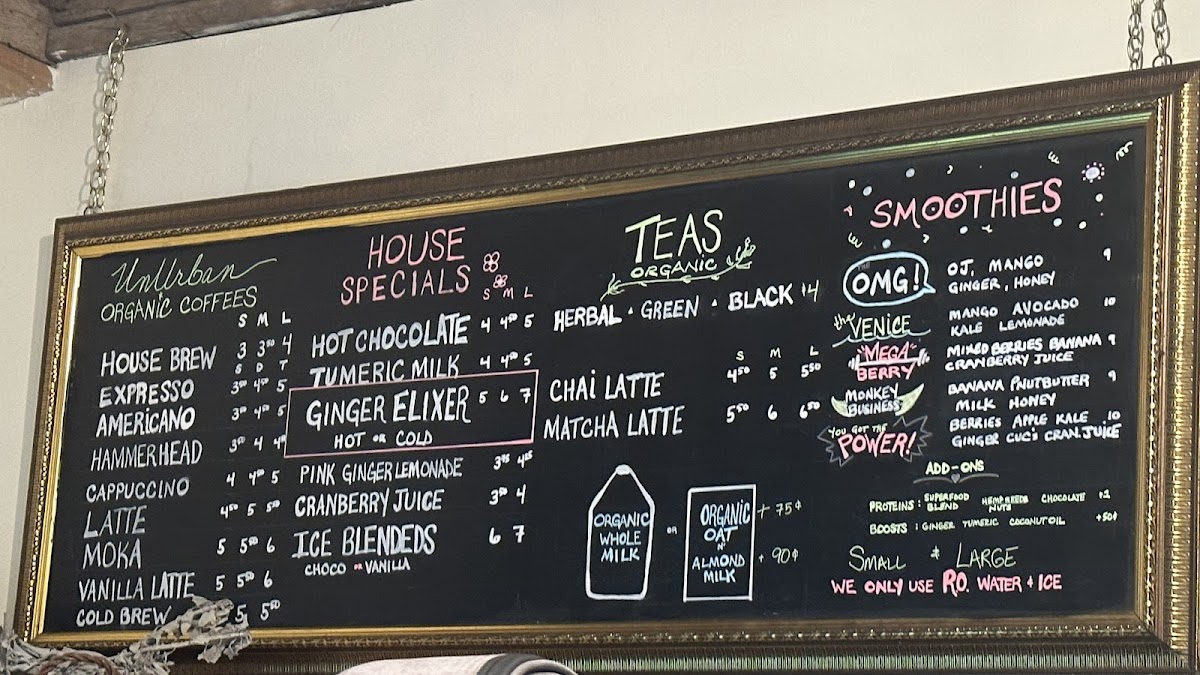 UnUrban
ORGANIC COFFEES
S M L
HOUSE BREW 3 3⁵⁰ 4
S D T
EXPRESSO 3⁵⁰ 4⁵⁰ 5
AMERICANO 3⁵⁰ 4⁵⁰ 5
HAMMERHEAD 3⁵⁰ 4
CAPPUCCINO 4 4⁵⁰ 5
LATTE 4⁵⁰ 5 5⁵⁰
MOKA 5 5⁵⁰ 6
VANILLA LATTE 5 5⁵⁰ 6
COLD BREW 5 5⁵⁰
HOUSE
SPECIALS
S M L
HOT CHOCOLATE 4 4⁵⁰ 5
TUMERIC MILK 4 4⁵⁰ 5
GINGER ELIXER 5 6 7
HOT OR COLD
PINK GINGER LEMONADE
CRANBERRY JUICE 3⁵⁰ 4
ICE BLENDEDS 6 7
CHOCO OR VANILLA
TEAS
ORGANIC
HERBAL · GREEN · BLACK 4
S M L
CHAI LATTE 4⁵⁰ 5 5⁵⁰
MATCHA LATTE 5⁵⁰ 6 6⁵⁰
ORGANIC
WHOLE
MILK
OR
ORGANIC
OAT
N'
ALMOND
MILK
+ 75¢
+ 90¢
SMOOTHIES
THE
OMG!
OJ, MANGO 9
GINGER, HONEY
the VENICE
MANGO AVOCADO 10
KALE LEMONADE
MEGA
BERRY
MIXED BERRIES BANANA 9
CRANBERRY JUICE
MONKEY
BUSINESS
BANANA PNUTBUTTER 9
MILK HONEY
YOU GOT THE
POWER!
BERRIES APPLE KALE 10
GINGER CUC'S CRAN.JUICE
ADD-ONS
PROTEINS: SUPERFOOD BLEND HEMP SEEDS NUTS CHOCOLATE +1
BOOSTS: GINGER TUMERIC COCONUT OIL +50¢
SMALL & LARGE
WE ONLY USE R.O. WATER + ICE